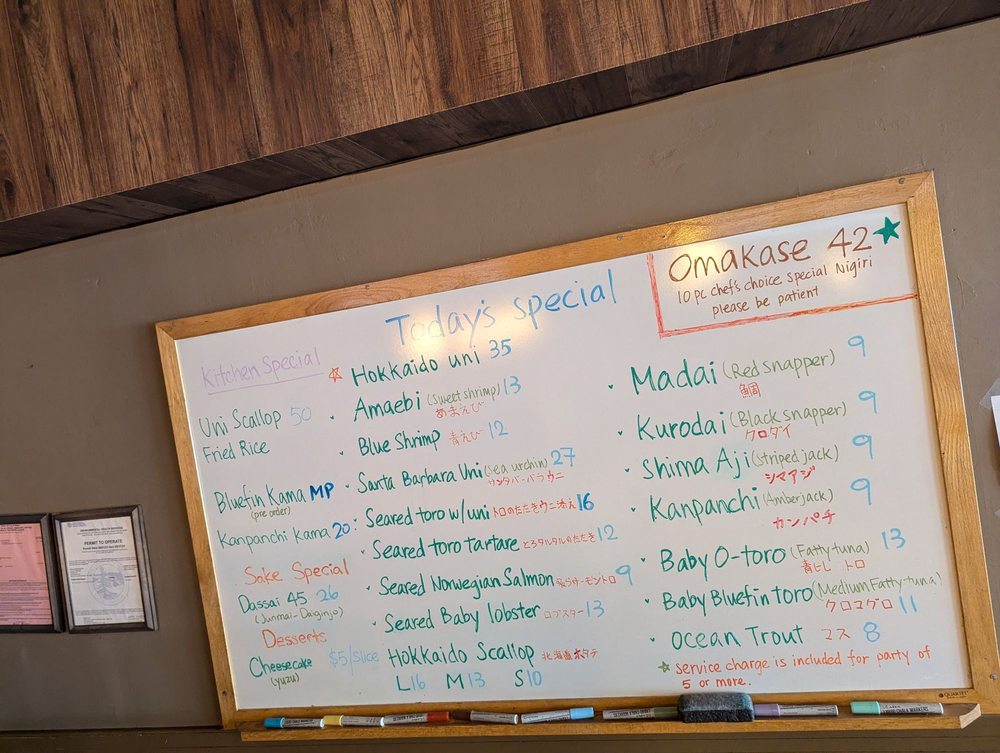 Today's special
Omakase 42
10 pc chef's choice special Nigiri
please be patient
Kitchen Special
Uni Scallop 50
Fried Rice
Bluefin Kama MP
(pre order)
Kanpanchi Kama 20
Sake Special
Dassai 45 26
(Junmai-Daiginjo)
Desserts
Cheesecake $5/slice
(yuzu)
Hokkaido uni 35
Amaebi (sweet shrimp) 13
あまえび
Blue Shrimp 青えび 12
Santa Barbara Uni (sea urchin) 27
サンタバーバラウニ
Seared toro w/uni トロのたたきウニ添え 16
Seared toro tartare とろタルタルのたたき 12
Seared Norwegian Salmon 9
Seared Baby lobster ロブスター 13
Hokkaido Scallop 北海道ホタテ
L16 M13 S10
Madai (Red snapper) 9
鯛
Kurodai (Black snapper) 9
クロダイ
Shima Aji (striped jack) 9
シマアジ
Kanpanchi (Amberjack) 9
カンパチ
Baby O-toro (Fatty tuna) 13
トロ
Baby Bluefin toro (Medium Fatty-tuna)
クロマグロ 11
Ocean Trout マス 8
service charge is included for party of
5 or more.
QUARTET
PERMIT TO OPERATE